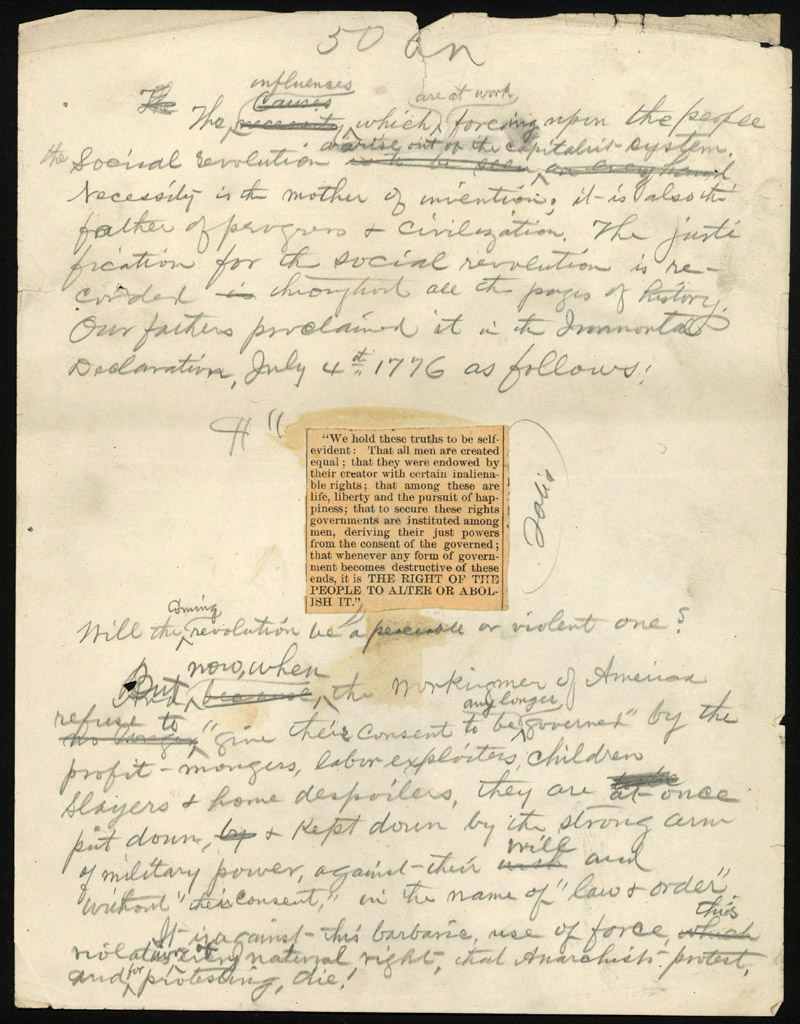 50
The influences
Causes are at work
The necessity, which forcing upon the people
arise out of the capitalist system.
the Social revolution is to be seen on every hand
Necessity is the mother of invention; it is also the
father of progress & civilization. The justi
fication for the social revolution is re-
corded in throughout all the pages of history.
Our fathers proclaimed it in the Immortal
Declaration, July 4th 1776 as follows:
"We hold these truths to be self-
evident: That all men are created
equal; that they were endowed by
their creator with certain inaliena-
ble rights; that among these are
life, liberty and the pursuit of hap-
piness; that to secure these rights
governments are instituted among
men, deriving their just powers
from the consent of the governed;
that whenever any form of govern-
ment becomes destructive of these
ends, it is THE RIGHT OF THE
PEOPLE TO ALTER OR ABOL-
ISH IT."
coming
Will the revolution be a peaceable or violent one?
But now, when
And because, the workingmen of America
refuse to any longer
no longer "give their consent to be governed" by the
profit-mongers, labor exploiters, children
slayers & home despoilers, they are at once
put down, by & kept down by the strong arm
of military power, against their will
wish and
"without their consent," in the name of "law & order".
It is against this barbaric use of force, which this
violation of every natural right, that Anarchists protest,
and for protesting, die!